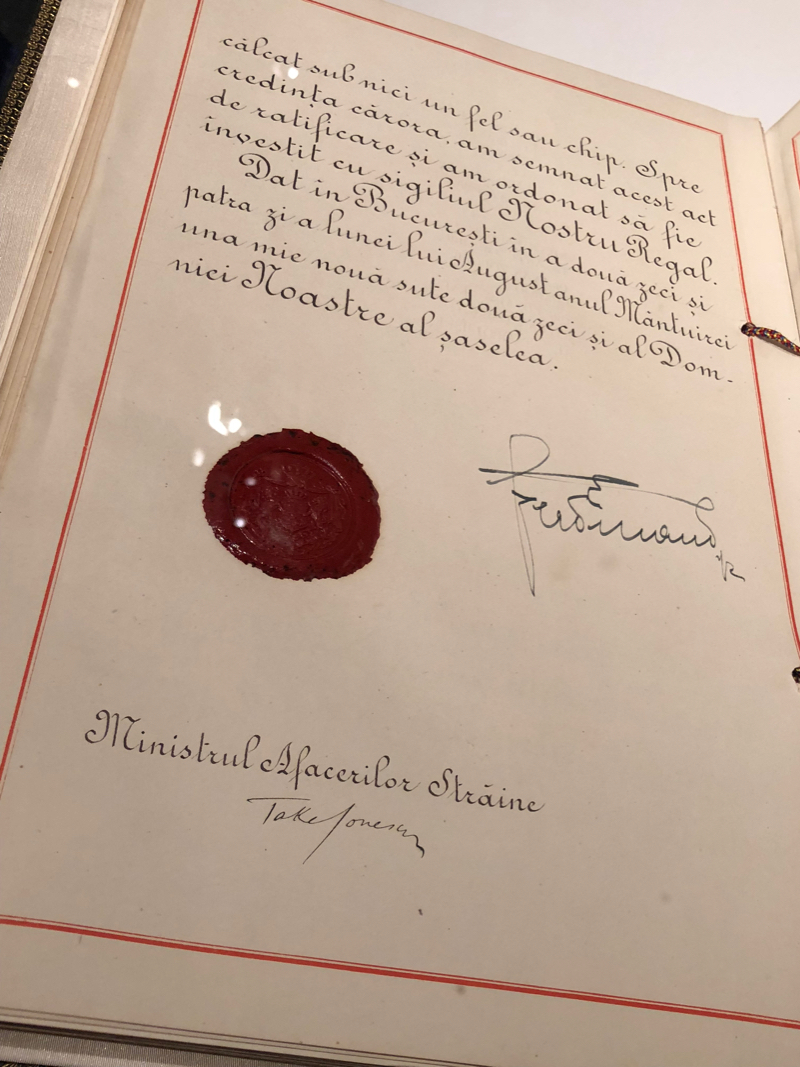 călcat sub nici un fel sau chip. Spre
credința cărora, am semnat acest act
de ratificare și am ordonat să fie
învestit cu sigiliul Nostru Regal.
Dat în București în a două zeci și
patra zi a lunei lui August anul Mântuirei
una mie nouă sute două zeci și al Dom-
niei Noastre al șaselea.
Ferdinand
Ministrul Afacerilor Străine
Take Ionescu